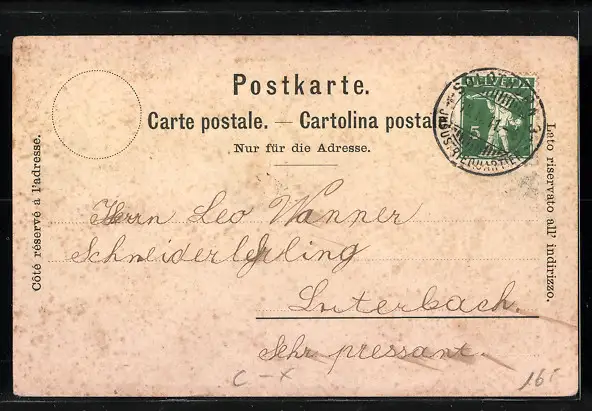 Postkarte.
Carte postale. — Cartolina postale
Nur für die Adresse.
HELVETIA
5
Côté réservé à l'adresse.
Lato riservato all' indirizzo.
Herrn Leo Wanner
Schneiderlehrling
Luterbach.
Sehr pressant.
C – x
16